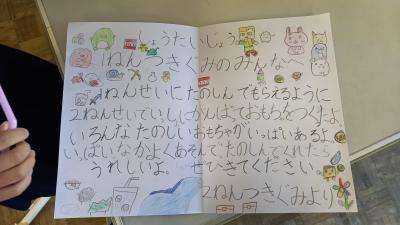 しょうたいじょう
1ねんつきぐみのみんなへ
1ねんせいにたのしんでもらえるように
2ねんせいでいっしょにがんばっておもちゃをつくったよ。
いろんなたのしいおもちゃがいっぱいあるよ
いっぱいなかよくあそんでたのしんでくれたら
うれしいよ。ぜひきてください
2ねんつきぐみより